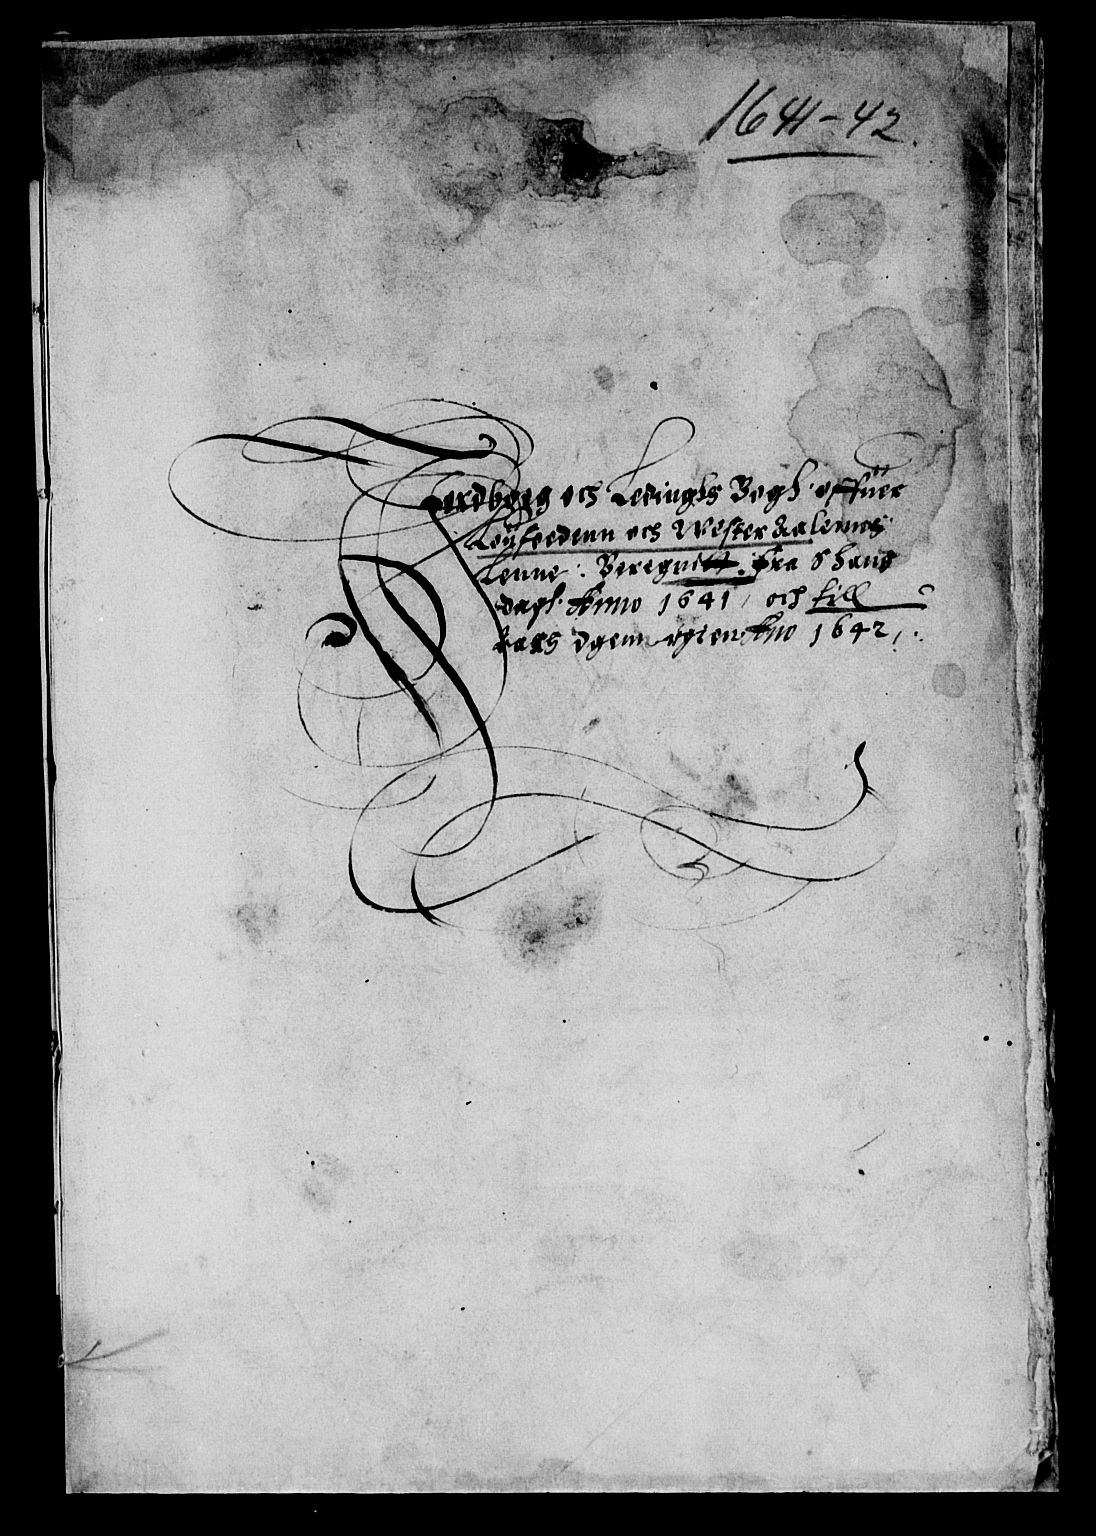 1641-42.
Jordbogg och Ledingls Bogh offuer
Loufoedenn och Wester Aalernes
Lenne. Beregnett. fra S hans
dagh Anno 1641, och till
Aars dgenn igien Ano 1642,